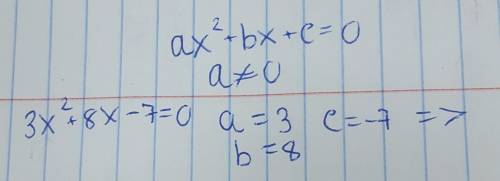 ax²+bx+c=0
a≠0
3x²+8x-7=0 a=3 c=-7 =>
b=8